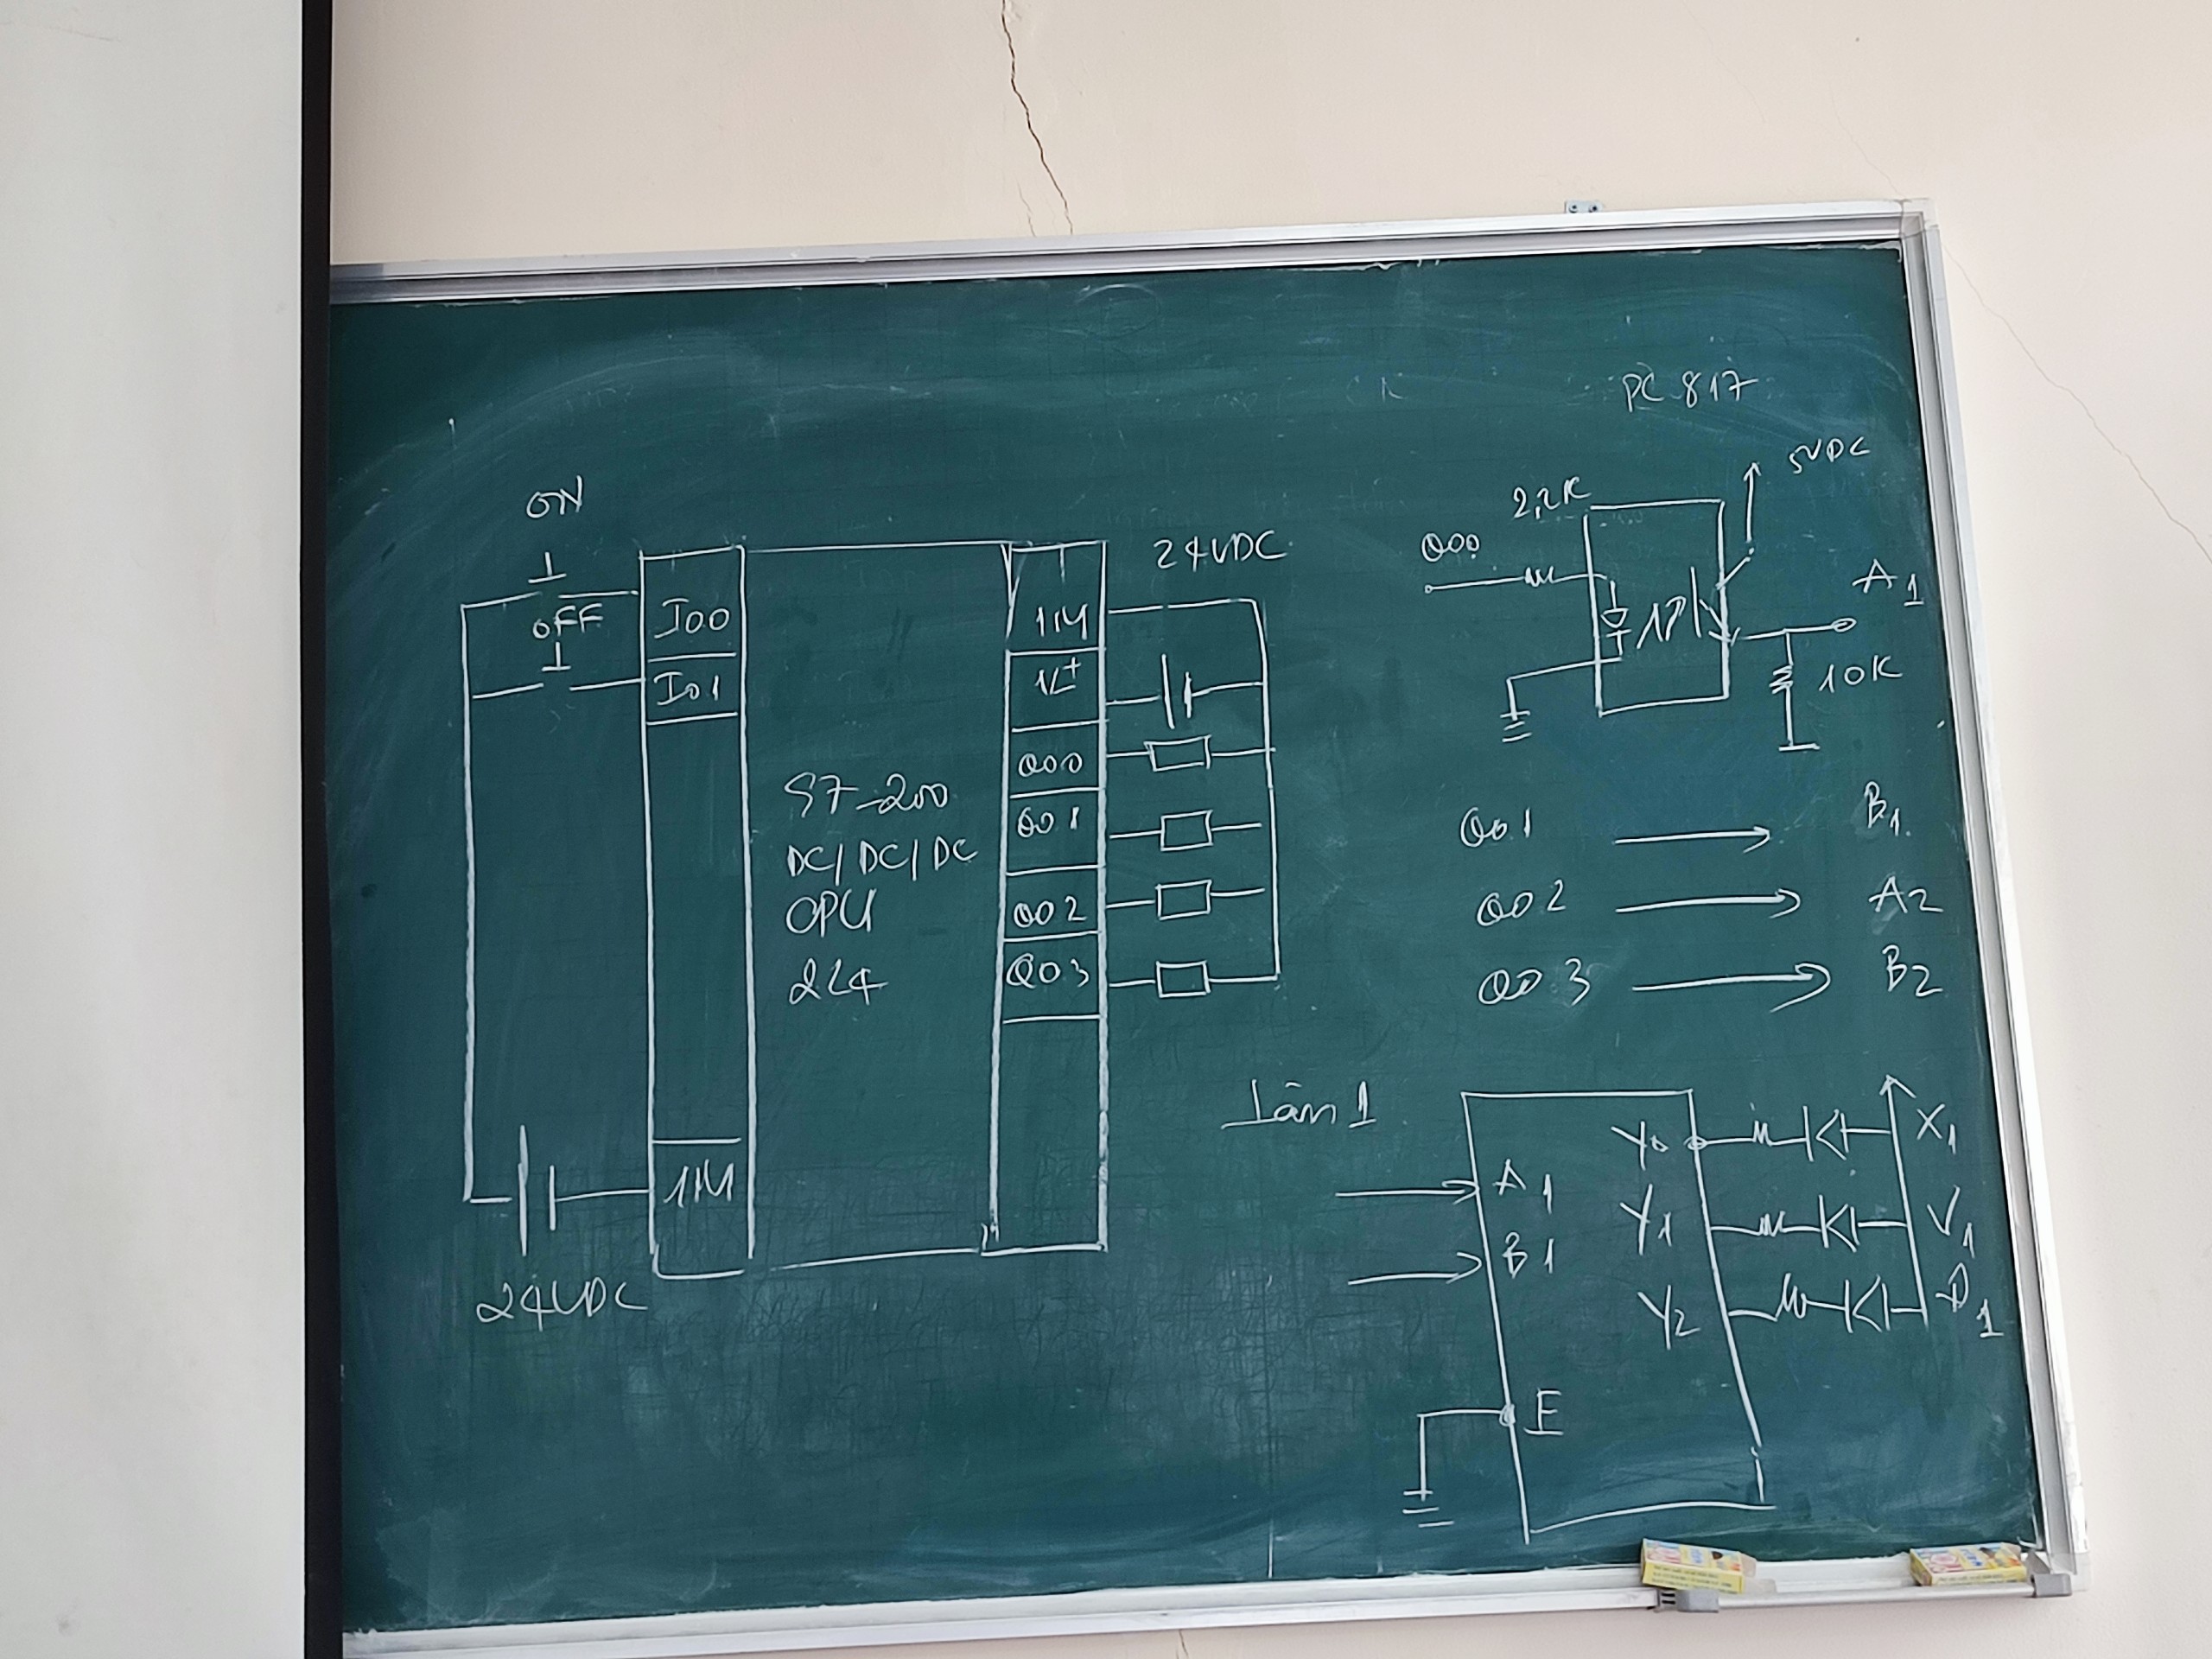 ON
OFF
I00
I01
1M
24VDC
S7-200
DC/DC/DC
CPU
224
24VDC
1M
1L+
Q00
Q01
Q02
Q03
PC 817
5VDC
2,2K
Q00
A1
10K
Q0.1 → B1
Q02 → A2
Q03 → B2
Làn 1
A1
B1
E
Y0 X1
Y1 V1
Y2 Đ1